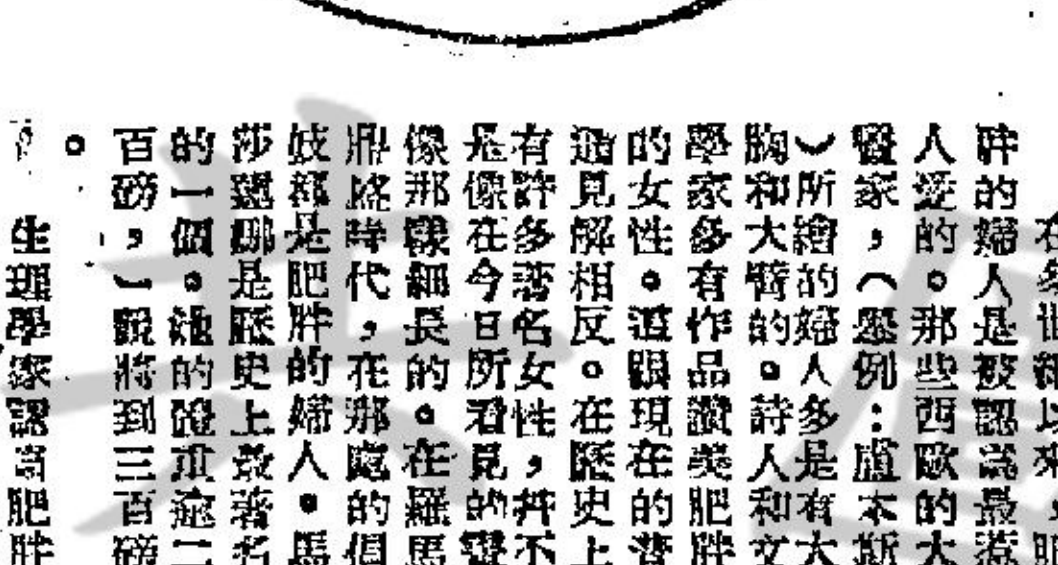 在多世紀以來，肥
胖的婦人是被認為最惹
人愛的。那些西歐的大
家，（例：盧本斯
）所繪的婦人多是有大
胸和大臂的。詩人和文
學家多有作品讚美肥胖
的女性。這跟現在的普
通見解相反。在歷史上
有許多著名女性，幷不
是像在今日所看見的
像那樣細長的。在羅馬
鼎盛時代，在那處的倡
妓都是肥胖的婦人。馬
莎是歷史上最著名
的一個。她的體重逾二
百磅，）說將到三百磅
。
生理學家認為肥胖